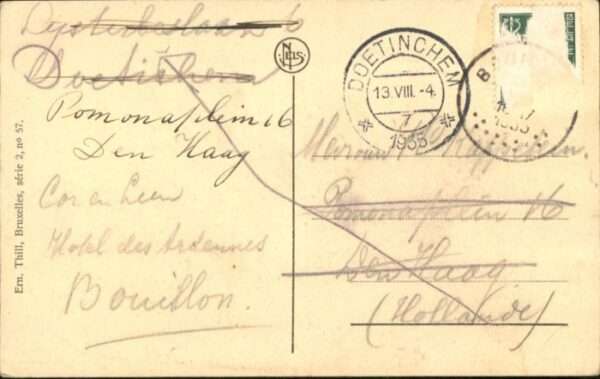 Doetichem
Pomonaplein 16
Den Haag
Cor en Leen
Hotel des Ardennes
Bouillon.
Ern. Thill, Bruxelles, série 2, no 57.
NELS
DOETINCHEM
13.VIII.-4.
7
1935
B
1935
Mevrouw
Pomonaplein 16
Den Haag
(Hollande)